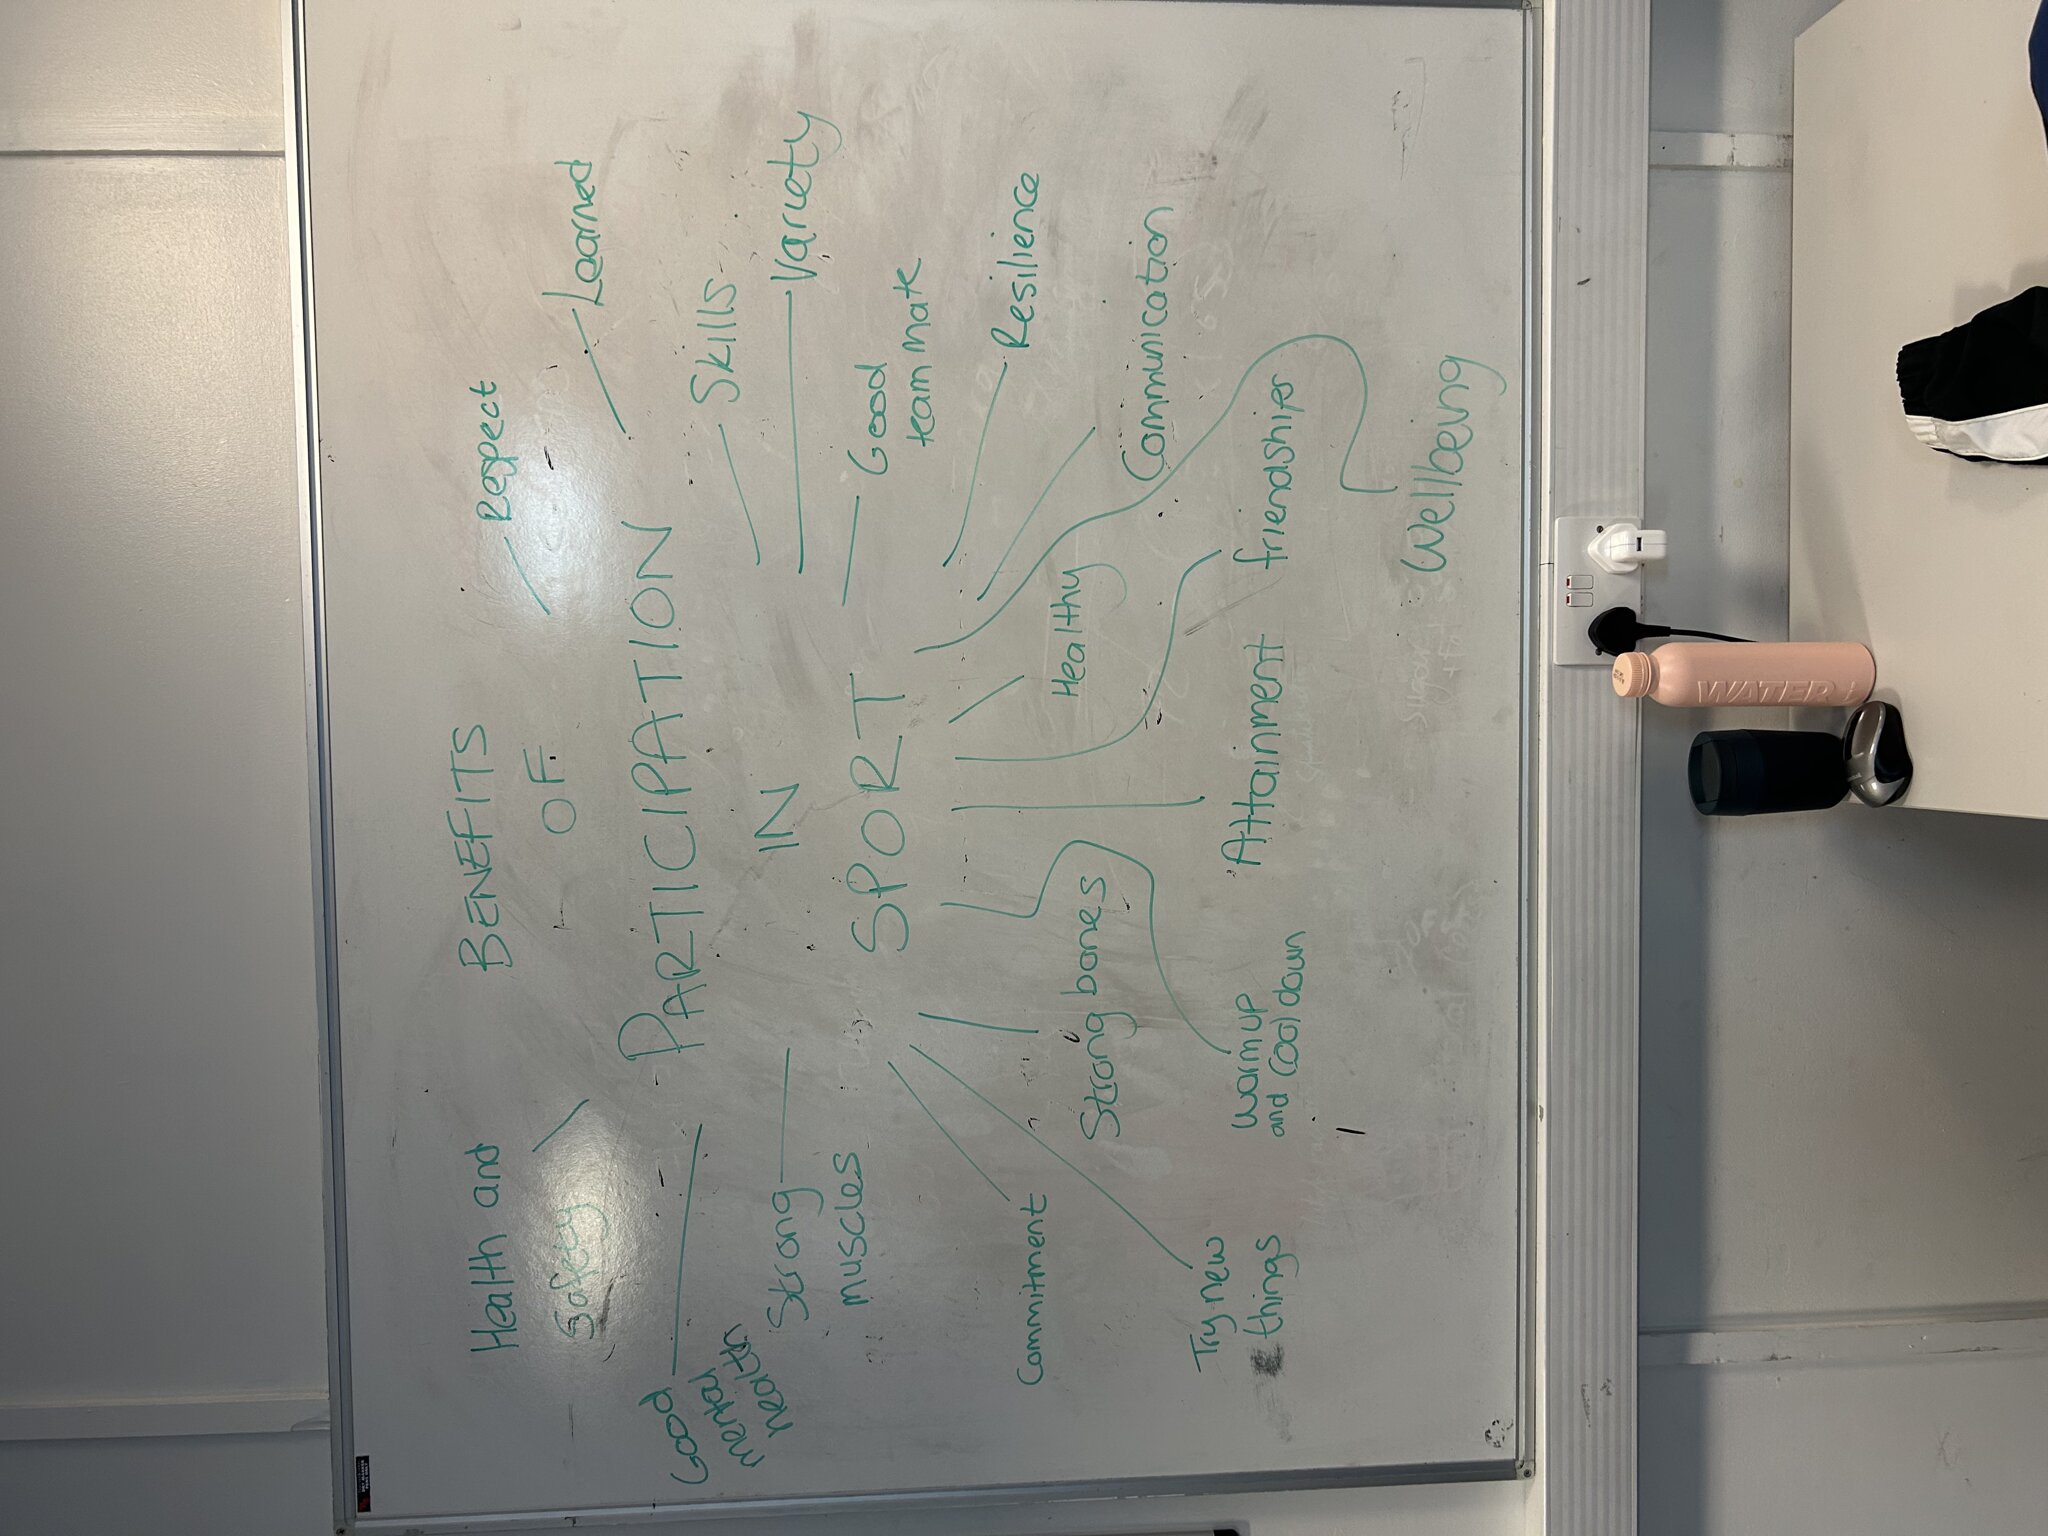 BENEFITS
OF
PARTICIPATION
IN
SPORT
Health and
Safety
Good
mental
health
Strong
muscles
Commitment
Try new
things
Strong bones
Warm up
and cool down
Attainment
Healthy
friendships
Wellbeing
Communication
Resilience
Good
team mate
Variety
Skills
Learned
Respect
WATER